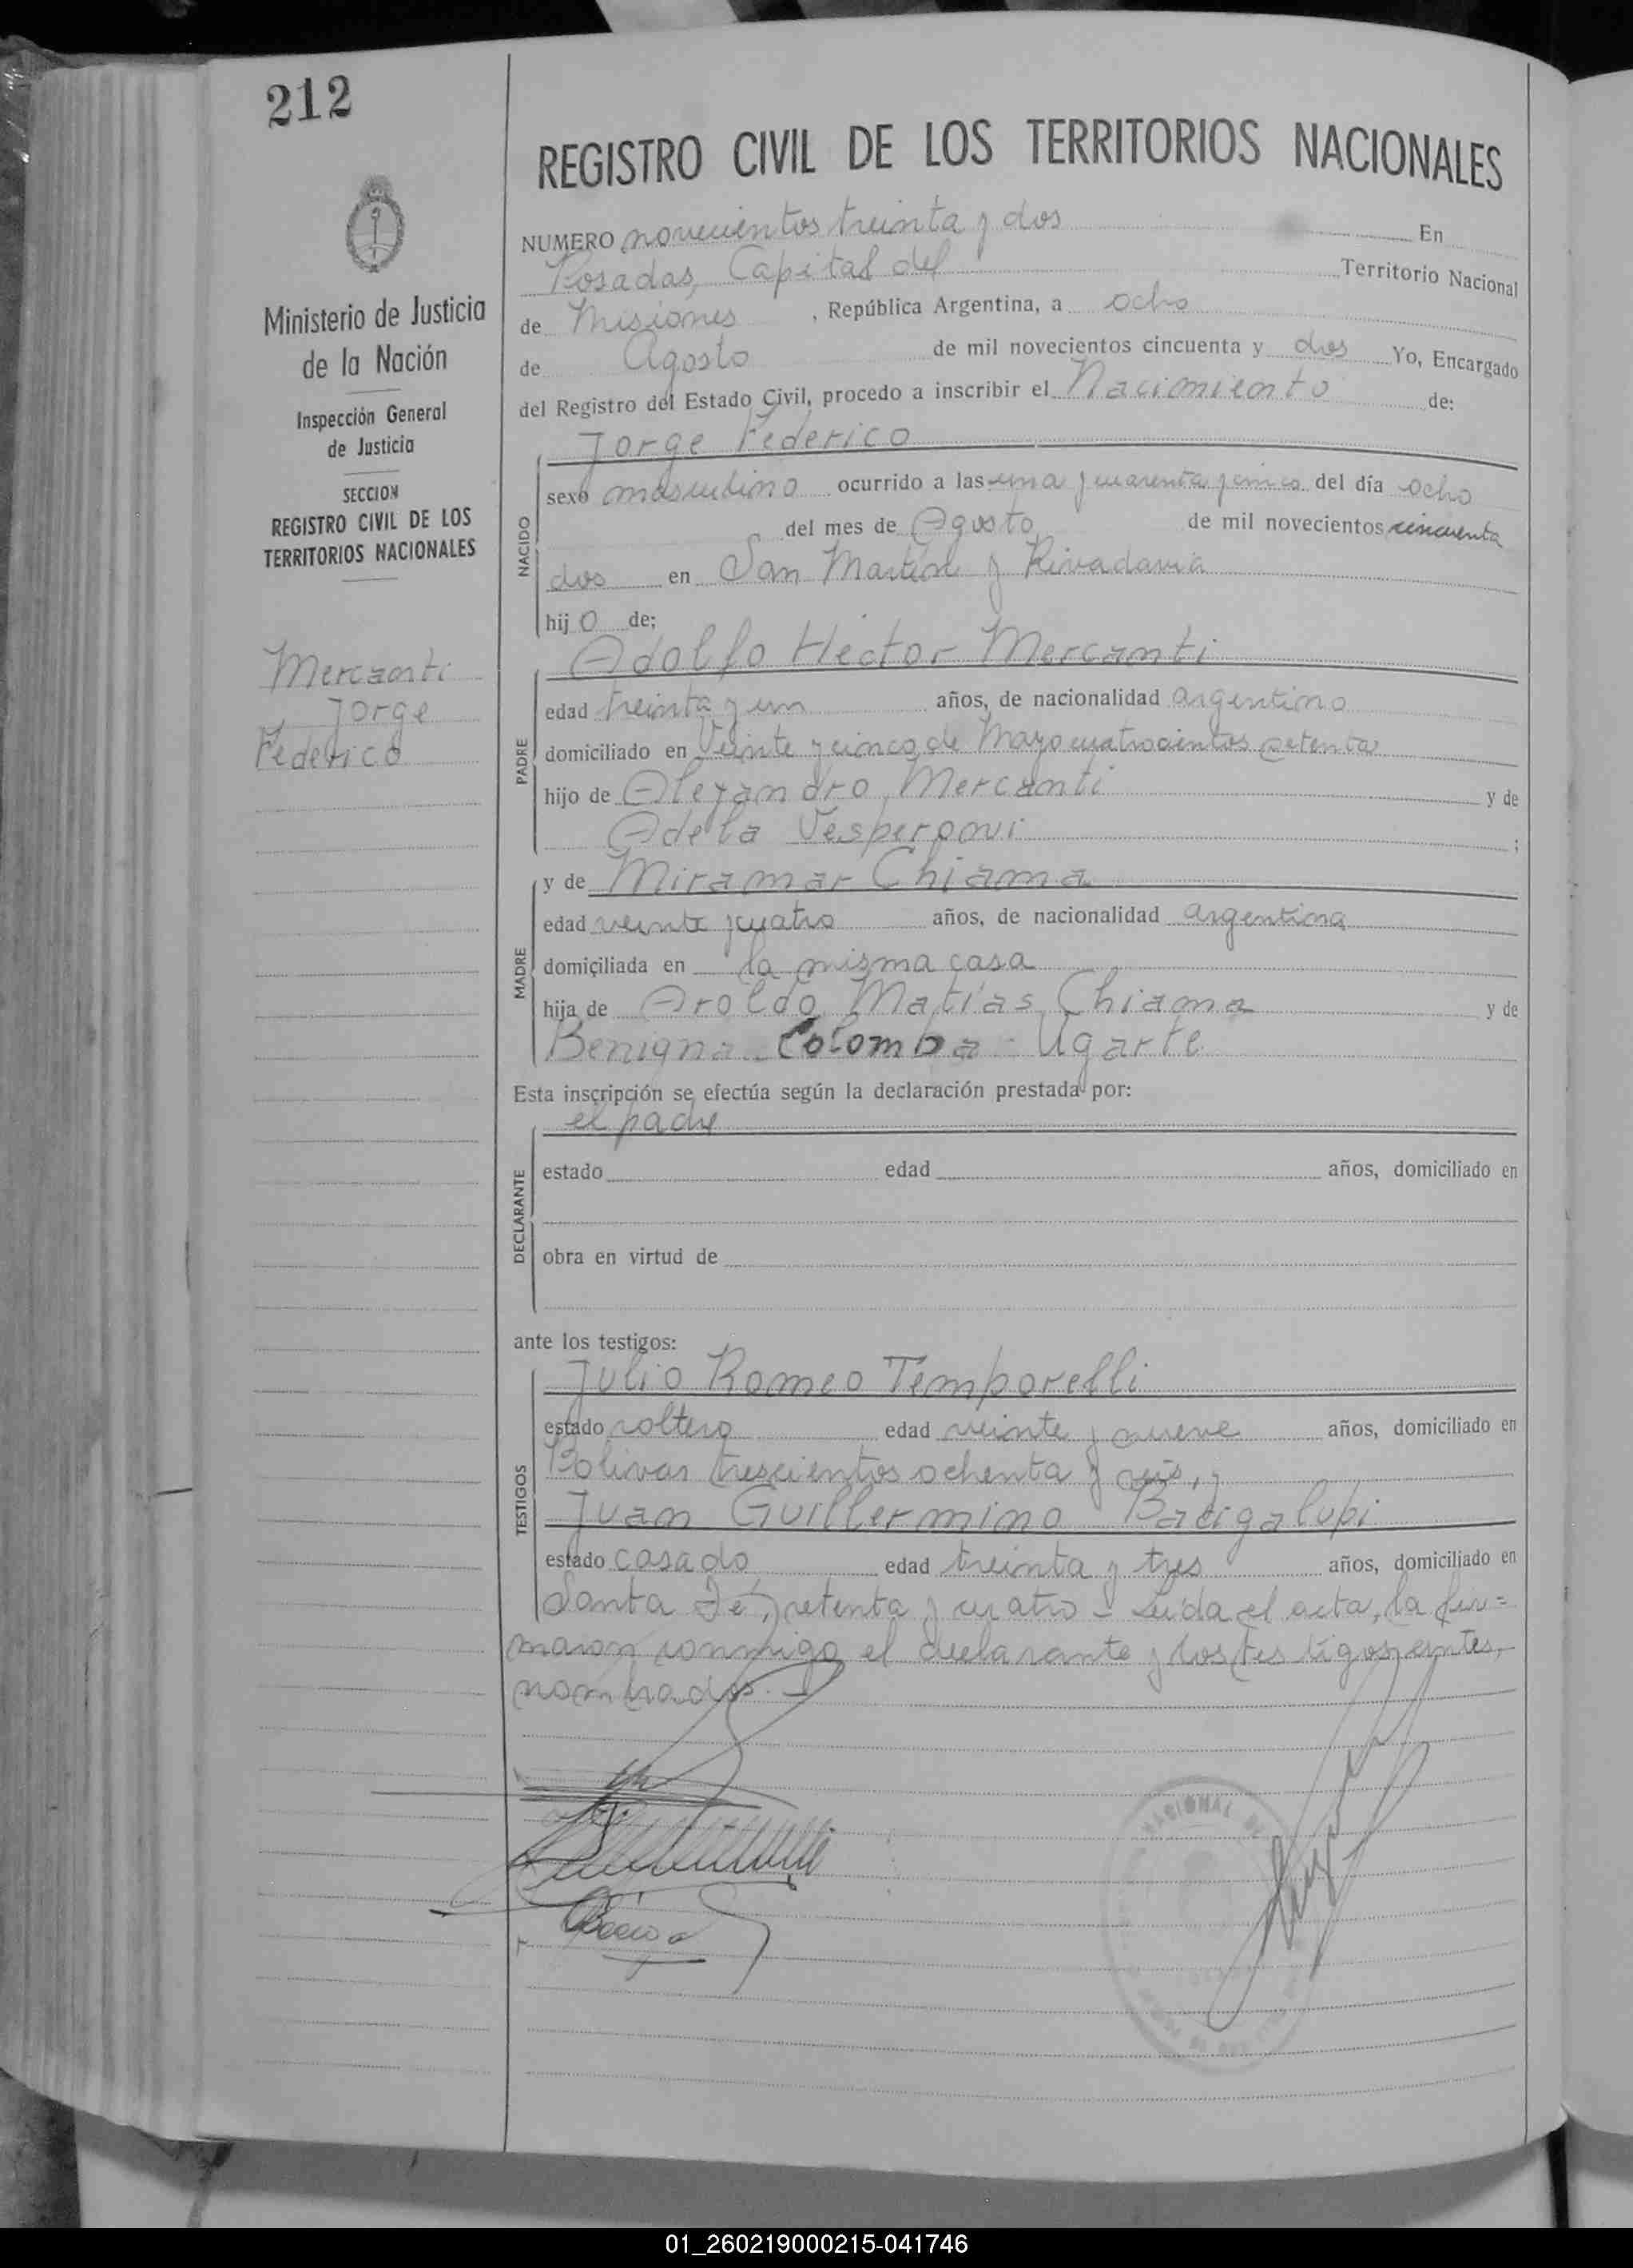 212
REGISTRO CIVIL DE LOS TERRITORIOS NACIONALES
Ministerio de Justicia
de la Nación
Inspección General
de Justicia
SECCION
REGISTRO CIVIL DE LOS
TERRITORIOS NACIONALES
Mercanti
Jorge
Federico
NUMERO novecientos treinta y dos En
Posadas, Capital del Territorio Nacional
de Misiones, República Argentina, a ocho
de Agosto de mil novecientos cincuenta y dos Yo, Encargado
del Registro del Estado Civil, procedo a inscribir el Nacimiento de:
NACIDO
Jorge Federico
sexo masculino ocurrido a las una y cuarenta y cinco del día ocho
del mes de Agosto de mil novecientos cincuenta
dos en San Martín y Rivadavia
hij o de:
PADRE
Adolfo Héctor Mercanti
edad treinta y un años, de nacionalidad argentino
domiciliado en Veinte y cinco de Mayo cuatrocientos setenta
hijo de Alejandro Mercanti y de
Adela Vesperoni ;
MADRE
y de Miramar Chiama
edad veinte y cuatro años, de nacionalidad argentina
domiciliada en la misma casa
hija de Aroldo Matías Chiama y de
Benigna Colomba Ugarte
Esta inscripción se efectúa según la declaración prestada por:
DECLARANTE
el padre
estado edad años, domiciliado en
obra en virtud de
ante los testigos:
TESTIGOS
Julio Romeo Temporelli
estado soltero edad veinte y nueve años, domiciliado en
Bolívar trescientos ochenta y seis, y
Juan Guillermino Bacigalupi
estado casado edad treinta y tres años, domiciliado en
Santa Fé, setenta y cuatro - Leída el acta, la fir=
maron conmigo el declarante y los testigos antes
nombrados.-
01_260219000215-041746